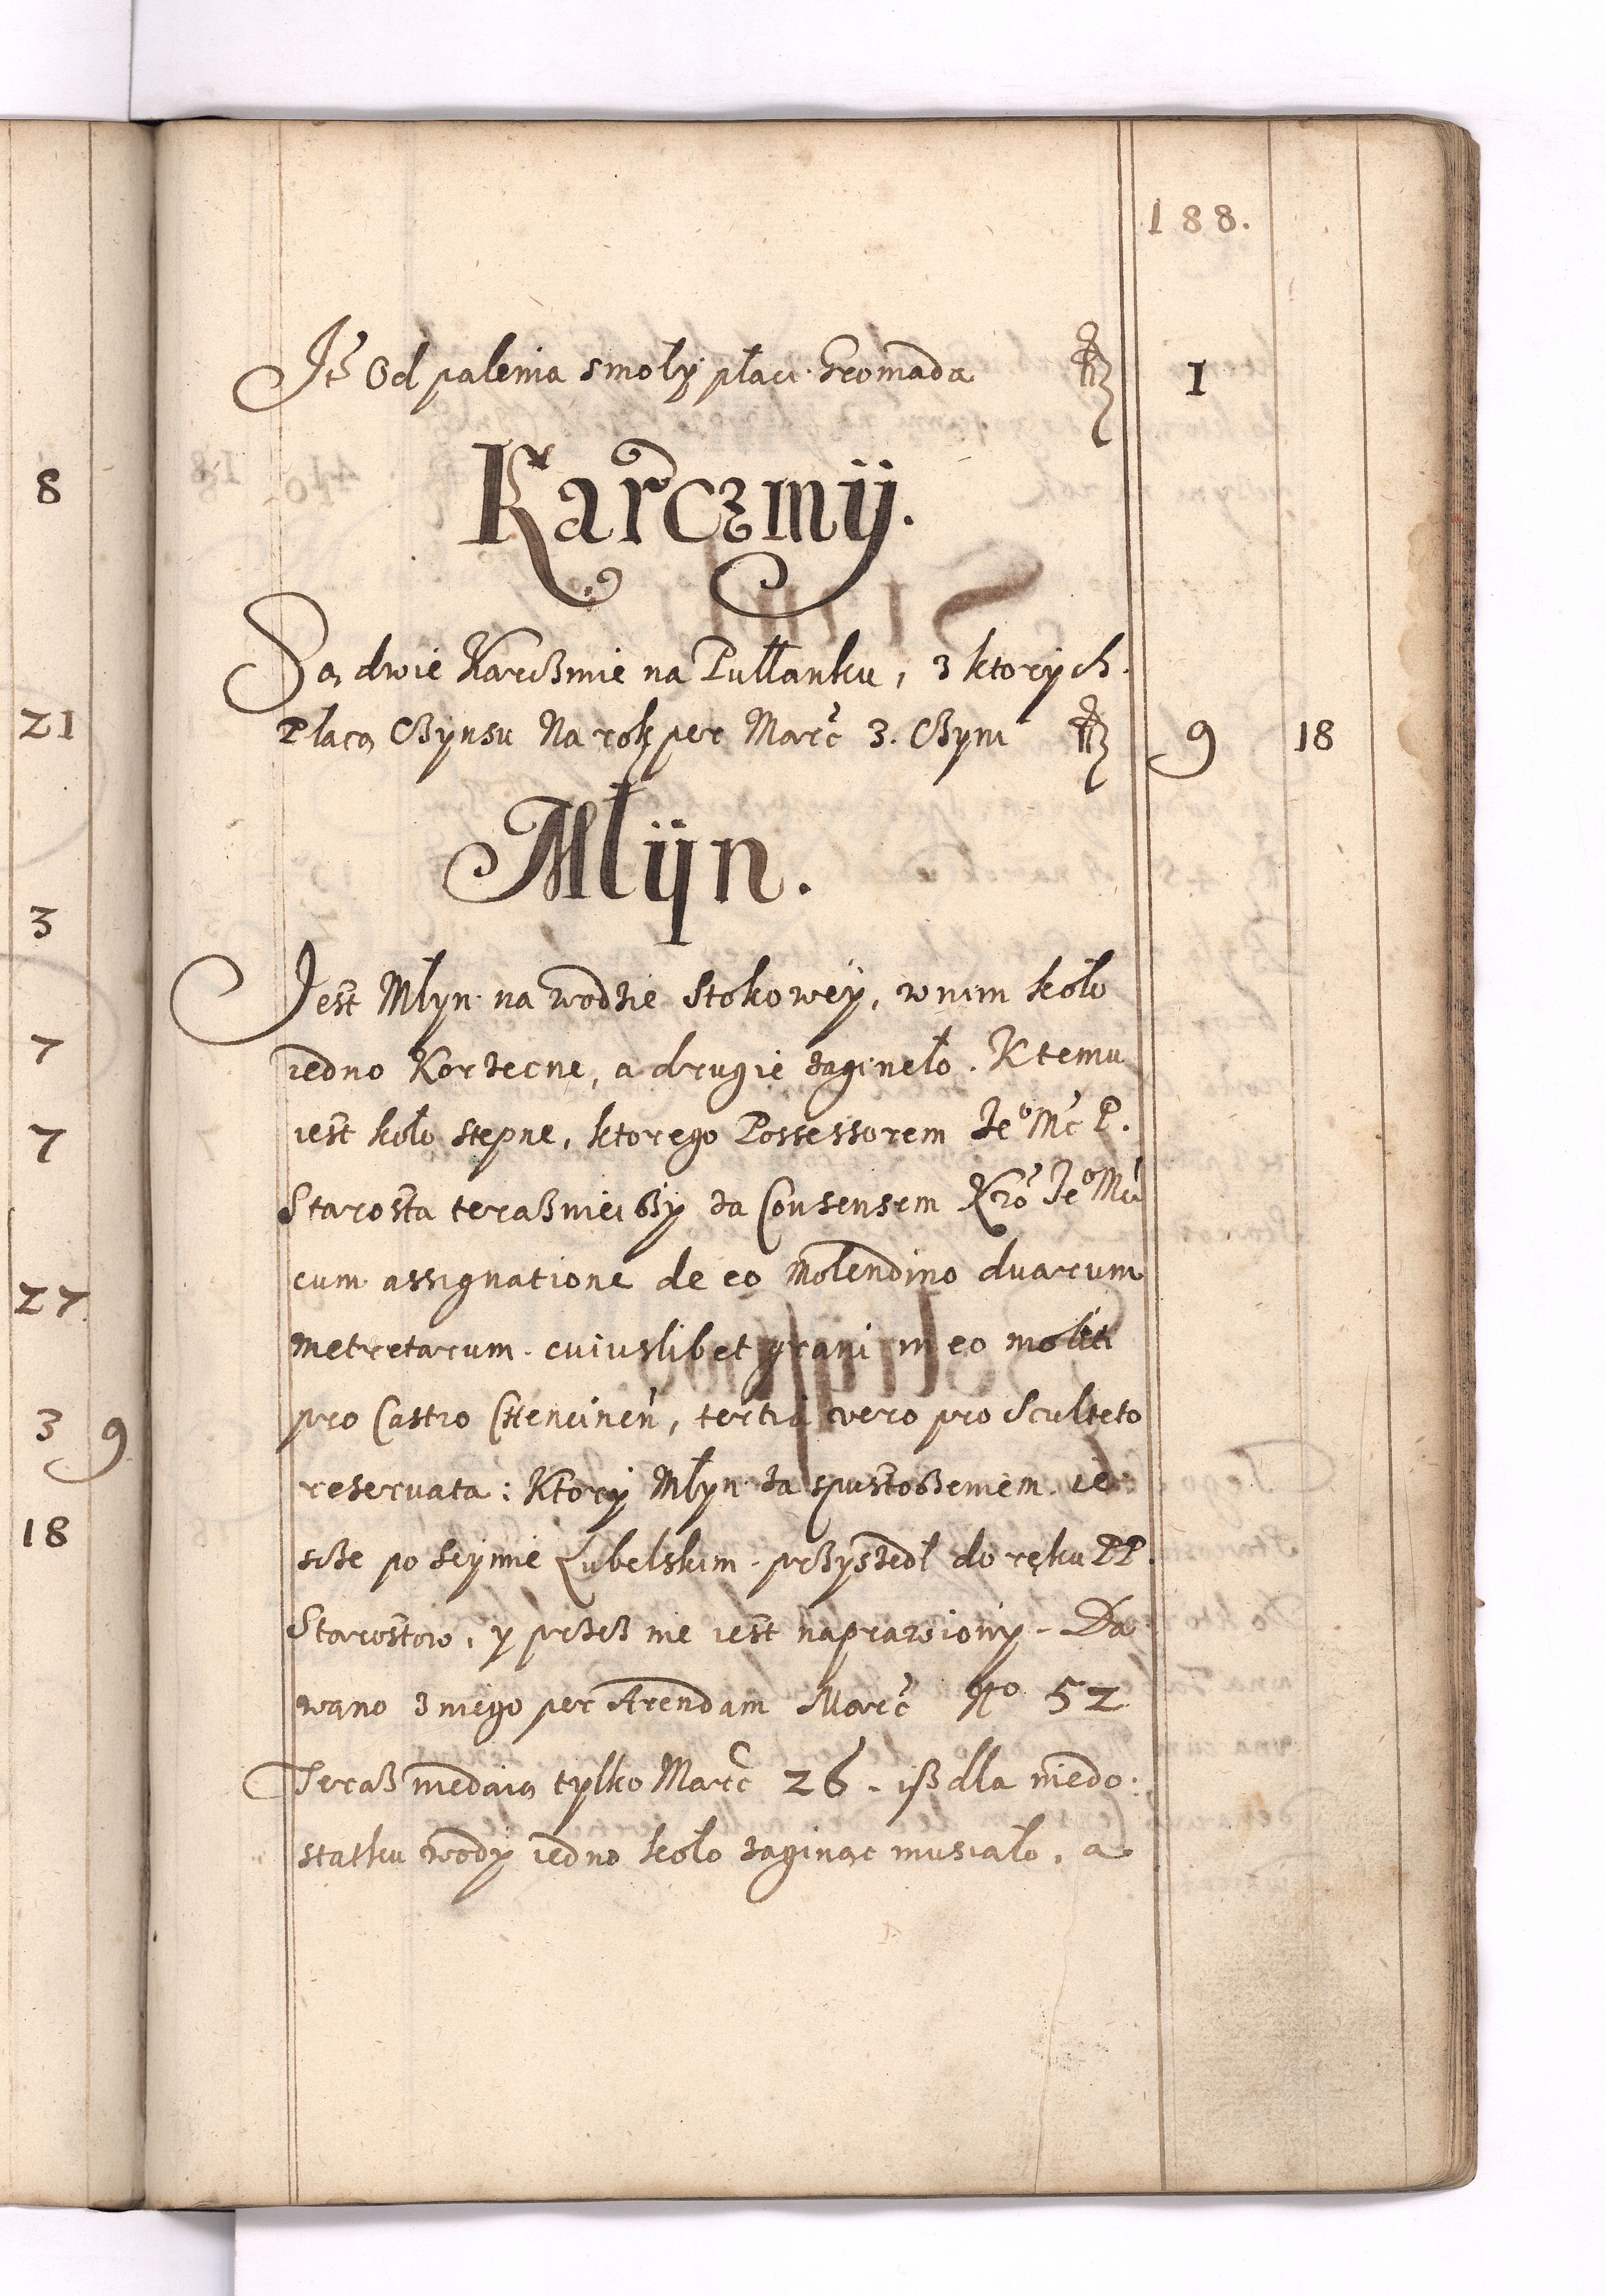 188.
Itē Od palenia smoły płaci Gromada fl 1
Karczmÿ.
Są dwie Karczmie na Pułłanku, z ktorych
Płacą Czynsu Na rok per Marc 3. Czyni fl 9 18
Młÿn.
Jest Młyn na wodzie Stokowey, w nim koło
iedno Korzecne, a drugie zagineło. K temu
iest koło stępne, ktorego Possessorem Jeº Mc P.
Starosta teraznieiszy za Consensem Kró Jeº Mci
cum assignatione de eo Molendino duarum
metretarum cuiuslibet grani in eo moliti
pro Castro Chencinen, tertia vero pro Sculteto
reservata: Ktory Młyn za spustoszeniem ie
scze po Seymie Lubelskim przyszedł do ręku PP.
Starostow, y przez nie iest naprawiony. Da
wano z niego per Arendam Marc Nº 52
Teraz niedaią tylko Marc 26. isz dla niedo:
statku wody iedno koło zaginąc musiało, a
8
21
3
7
7
27
3 9
18